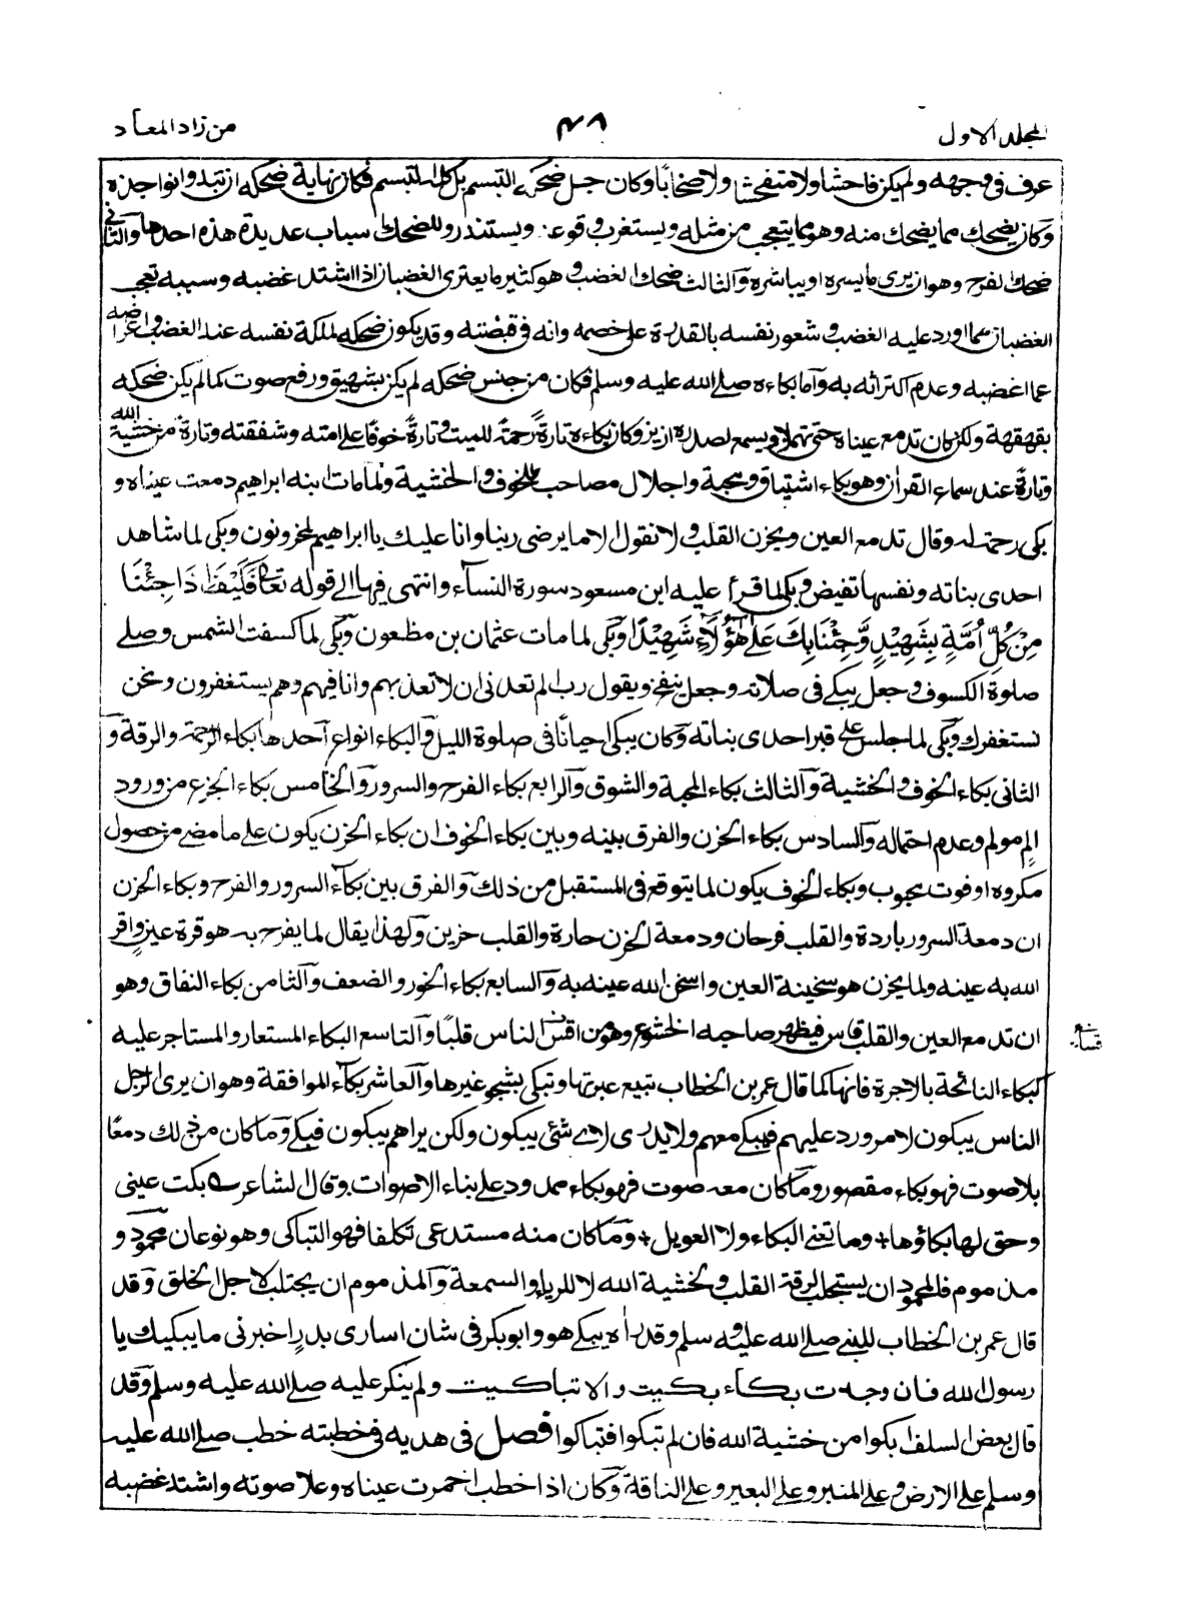 المجلد الاول
٤٨
من زاد المعاد
عرف فى وجهه ولم يكن فاحشا ولا متفحشا ولا صخابا وكان جل ضحكه التبسم بل كله التبسم فكان نهاية ضحكه ان تبدو نواجذه
وكان يضحك مما يضحك منه وهو مما يتعجب من مثله ويستغرب وقوعه ويستندر وللضحك اسباب عديدة هذه احدها والثانى
ضحك الفرح وهو ان يرى ما يسره او يباشره والثالث ضحك الغضب وهو كثير ما يعترى الغضبان اذا اشتد غضبه وسببه تعجب
الغضبان مما اورد عليه الغضب وشعور نفسه بالقدرة على خصمه وانه فى قبضته وقد يكون ضحكه لملكة نفسه عند الغضب واعراضه
عما اغضبه وعدم اكتراثه به وآما بكاءه صلى الله عليه وسلم فكان من جنس ضحكه لم يكن بشهيق ورفع صوت كما لم يكن ضحكه
بقهقهة ولكن كان تدمع عيناه حتى تهملا ويسمع لصدره ازيز وكان بكاءه تارة رحمة للميت وتارة خوفا على امته وشفقته وتارة من خشية الله
وتارة عند سماع القران وهو بكاء اشتياق ومحبة واجلال مصاحب للخوف والخشية ولما مات ابنه ابراهيم دمعت عيناه و
بكى رحمة له وقال تدمع العين ويحزن القلب ولا نقول الا ما يرضى ربنا وانا عليك يا ابراهيم لمحزونون وبكى لما شاهد
احدى بناته ونفسها تفيض وبكى لما قرأ عليه ابن مسعود سورة النسآء وانتهى فيها الى قوله تعالى فَكَيْفَ اِذَا جِئْنَا
مِنْ كُلِّ اُمَّةٍ بِشَهِيْدٍ وَّجِئْنَا بِكَ عَلٰى هٰٓؤُلَآءِ شَهِيْدًا وبكى لما مات عثمان بن مظعون وبكى لما كسفت الشمس وصلى
صلوة الكسوف وجعل يبكى فى صلاته وجعل ينفخ ويقول رب الم تعدنى ان لا تعذبهم وانا فيهم وهم يستغفرون ونحن
نستغفرك وبكى لما جلس على قبر احدى بناته وكان يبكى احيانا فى صلوة الليل والبكاء انواع آحدها بكاء الرحمة والرقة و
الثانى بكاء الخوف والخشية وآلثالث بكاء المحبة والشوق وآلرابع بكاء الفرح والسرور وآلخامس بكاء الجزع من ورود
الم مولم وعدم احتماله وآلسادس بكاء الحزن والفرق بينه وبين بكاء الخوف ان بكاء الحزن يكون على ما مضى من حصول
مكروه او فوت محبوب وبكاء الخوف يكون لما يتوقع فى المستقبل من ذلك وآلفرق بين بكاء السرور والفرح وبكاء الحزن
ان دمعة السرور باردة والقلب فرحان ودمعة الحزن حارة والقلب حزين ولهذا يقال لما يفرح به هو قرة عين واقر
الله به عينه ولما يحزن هو سخينة العين واسخن الله عينه به وآلسابع بكاء الخور والضعف وآلثامن بكاء النفاق وهو
ان تدمع العين والقلب قاس فيظهر صاحبه الخشوع وهو من اقسى الناس قلبا وآلتاسع البكاء المستعار والمستاجر عليه
كبكاء النائحة بالاجرة فانها كما قال عمر بن الخطاب تبيع عبرتها وتبكى بشجو غيرها وآلعاشر بكاء الموافقة وهو ان يرى الرجل
الناس يبكون لامر ورد عليهم فيبكى معهم ولا يدرى لاى شئ يبكون ولكن يراهم يبكون فيبكى وما كان من ذلك دمعًا
بلا صوت فهو بكاء مقصور وما كان معه صوت فهو بكاء ممدود على بناء الاصوات وقال الشاعر بكت عينى
وحق لها بكاؤها + وما تغنى البكاء ولا العويل + وما كان منه مستدعى تكلفا فهو التباكى وهو نوعان محمود و
مذموم فالمحمود ان يستجلب لرقة القلب ولخشية الله لا للرياء والسمعة وآلمذموم ان يجتلب لاجل الخلق وقد
قال عمر بن الخطاب للنبى صلى الله عليه وسلم وقد رأه يبكى هو وابو بكر فى شان اسارى بدر اخبرنى ما يبكيك يا
رسول الله فان وجدت بكاء بكيت والا تباكيت ولم ينكر عليه صلى الله عليه وسلم وقد
قال بعض السلف ابكوا من خشية الله فان لم تبكوا فتباكوا فصل فى هديه فى خطبته خطب صلى الله عليه
وسلم على الارض وعلى المنبر وعلى البعير وعلى الناقة وكان اذا خطب احمرت عيناه وعلا صوته واشتد غضبه